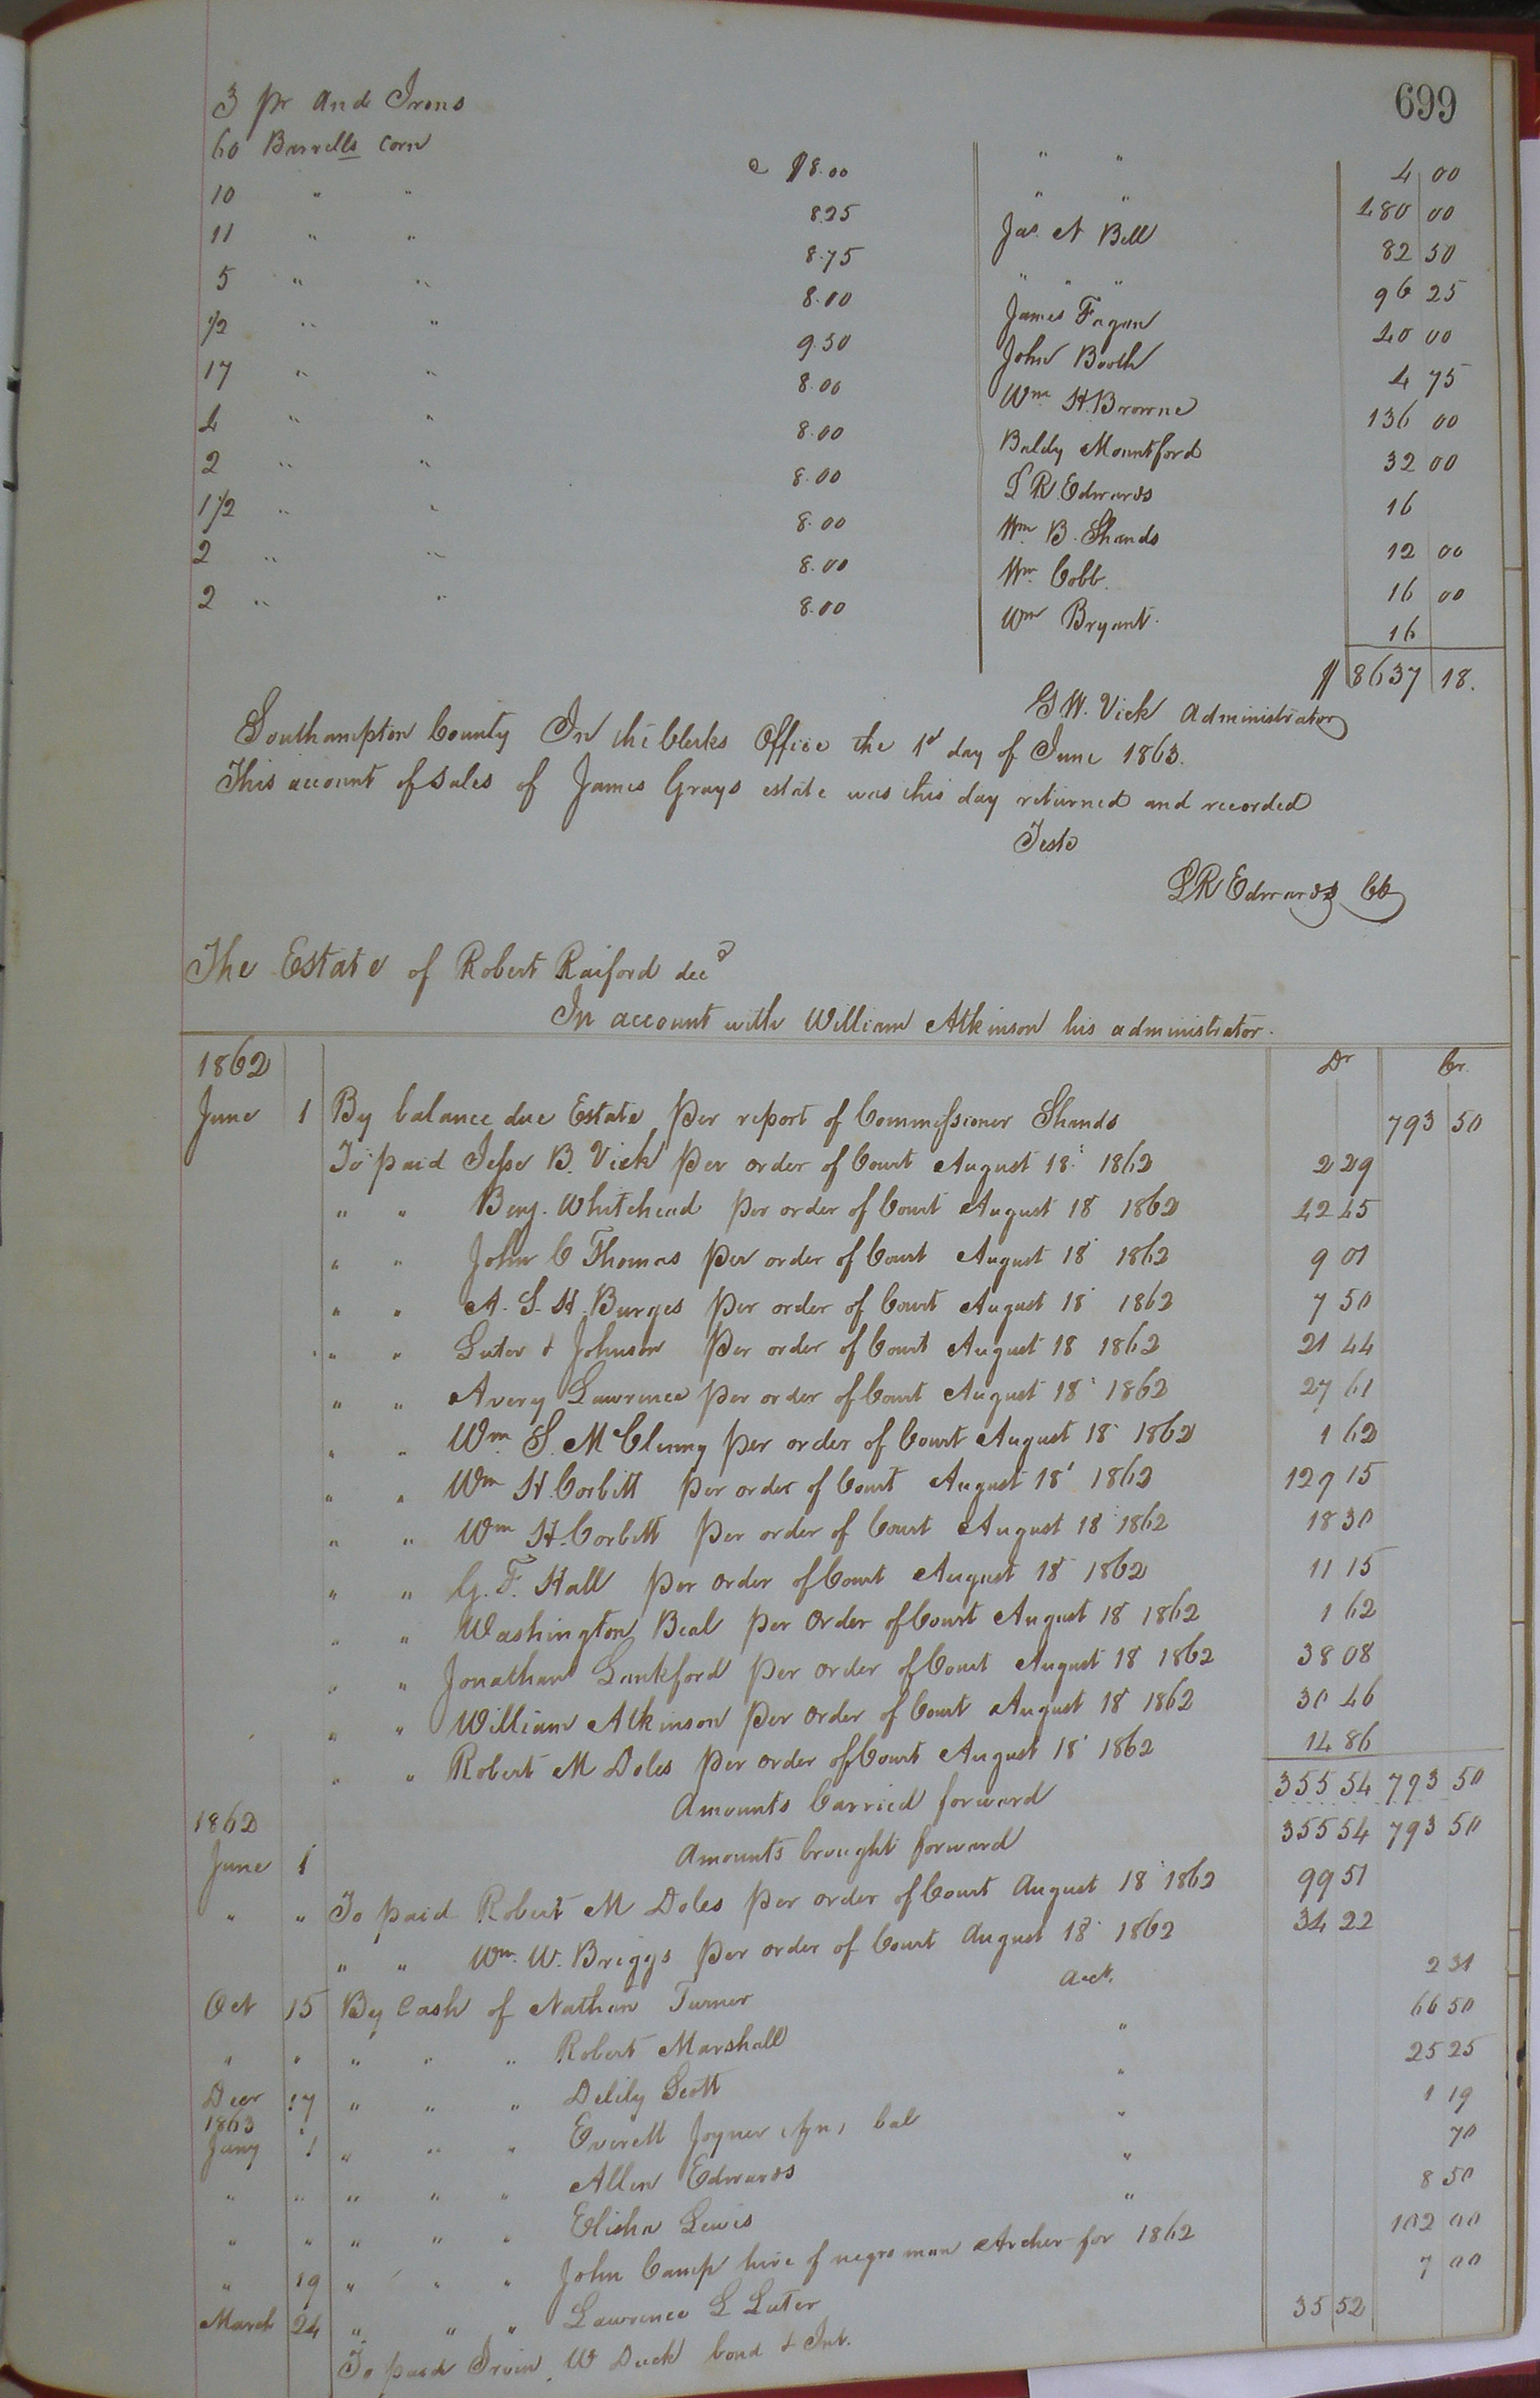 699
3 pr And Irons " " 4 00
60 Barrells corn @ $8.00 " " 480 00
10 " " 8.25 Jas. N Bell 82 50
11 " " 8.75 " " " 96 25
5 " " 8.00 James Fagan 40 00
1/2 " " 9.50 John Booth 4 75
17 " " 8.00 Wm H. Browne 136 00
4 " " 8.00 Baldy Mountford 32 00
2 " " 8.00 L R Edwards 16
1 1/2 " " 8.00 Wm B. Shands 12 00
2 " " 8.00 Wm Cobb 16 00
2 " " 8.00 Wm Bryant 16
$8637 18.
G. W. Vick Administrator
Southampton County In the Clerks Office the 1st day of June 1863.
This account of sales of James Grays estate was this day returned and recorded
Teste
L R Edwards CC
The Estate of Robert Raiford decd
In account with William Atkinson his administrator.
1862 Dr Cr.
June 1 By balance due Estate per report of Commissioner Shands 793 50
To paid Jesse B. Vick per order of Court August 18 1862 2 29
" " Benj. Whitehead per order of Court August 18 1862 42 45
" " John C Thomas per order of Court August 18 1862 9 01
" " A. S. H. Burges per order of Court August 18 1862 7 50
" " Luter & Johnson per order of Court August 18 1862 21 44
" " Avery Lawrence per order of Court August 18 1862 27 61
" " Wm S. McClenny per order of Court August 18 1862 1 62
" " Wm H. Corbitt per order of Court August 18 1862 129 15
" " Wm H. Corbitt per order of Court August 18 1862 18 30
" " G. F. Hall per order of Court August 18 1862 11 15
" " Washington Beal per Order of Court August 18 1862 1 62
" " Jonathan Lankford per order of Court August 18 1862 38 08
" " William Atkinson per Order of Court August 18 1862 30 46
" " Robert M Doles per order of Court August 18 1862 14 86
Amounts Carried forward 355 54 793 50
1862
June 1 Amounts brought forward 355 54 793 50
" " To paid Robert M Doles per order of Court August 18 1862 99 51
" " Wm. W. Briggs per order of Court August 18 1862 34 22
Oct 15 By Cash of Nathan Turner acct. 2 31
" " " " " Robert Marshall " 66 50
Decr 17 " " " Delily Scott " 25 25
1863
Jany 1 " " " Everett Joyner bal " 1 19
" " " " " Allen Edwards " 70
" " " " " Elisha Lewis " 8 50
" 19 " " " John Camp hire of negro man Archer for 1862 102 00
March 24 " " " Lawrence L Luter 7 00
To paid Irvin W Duck bond & Int. 35 52